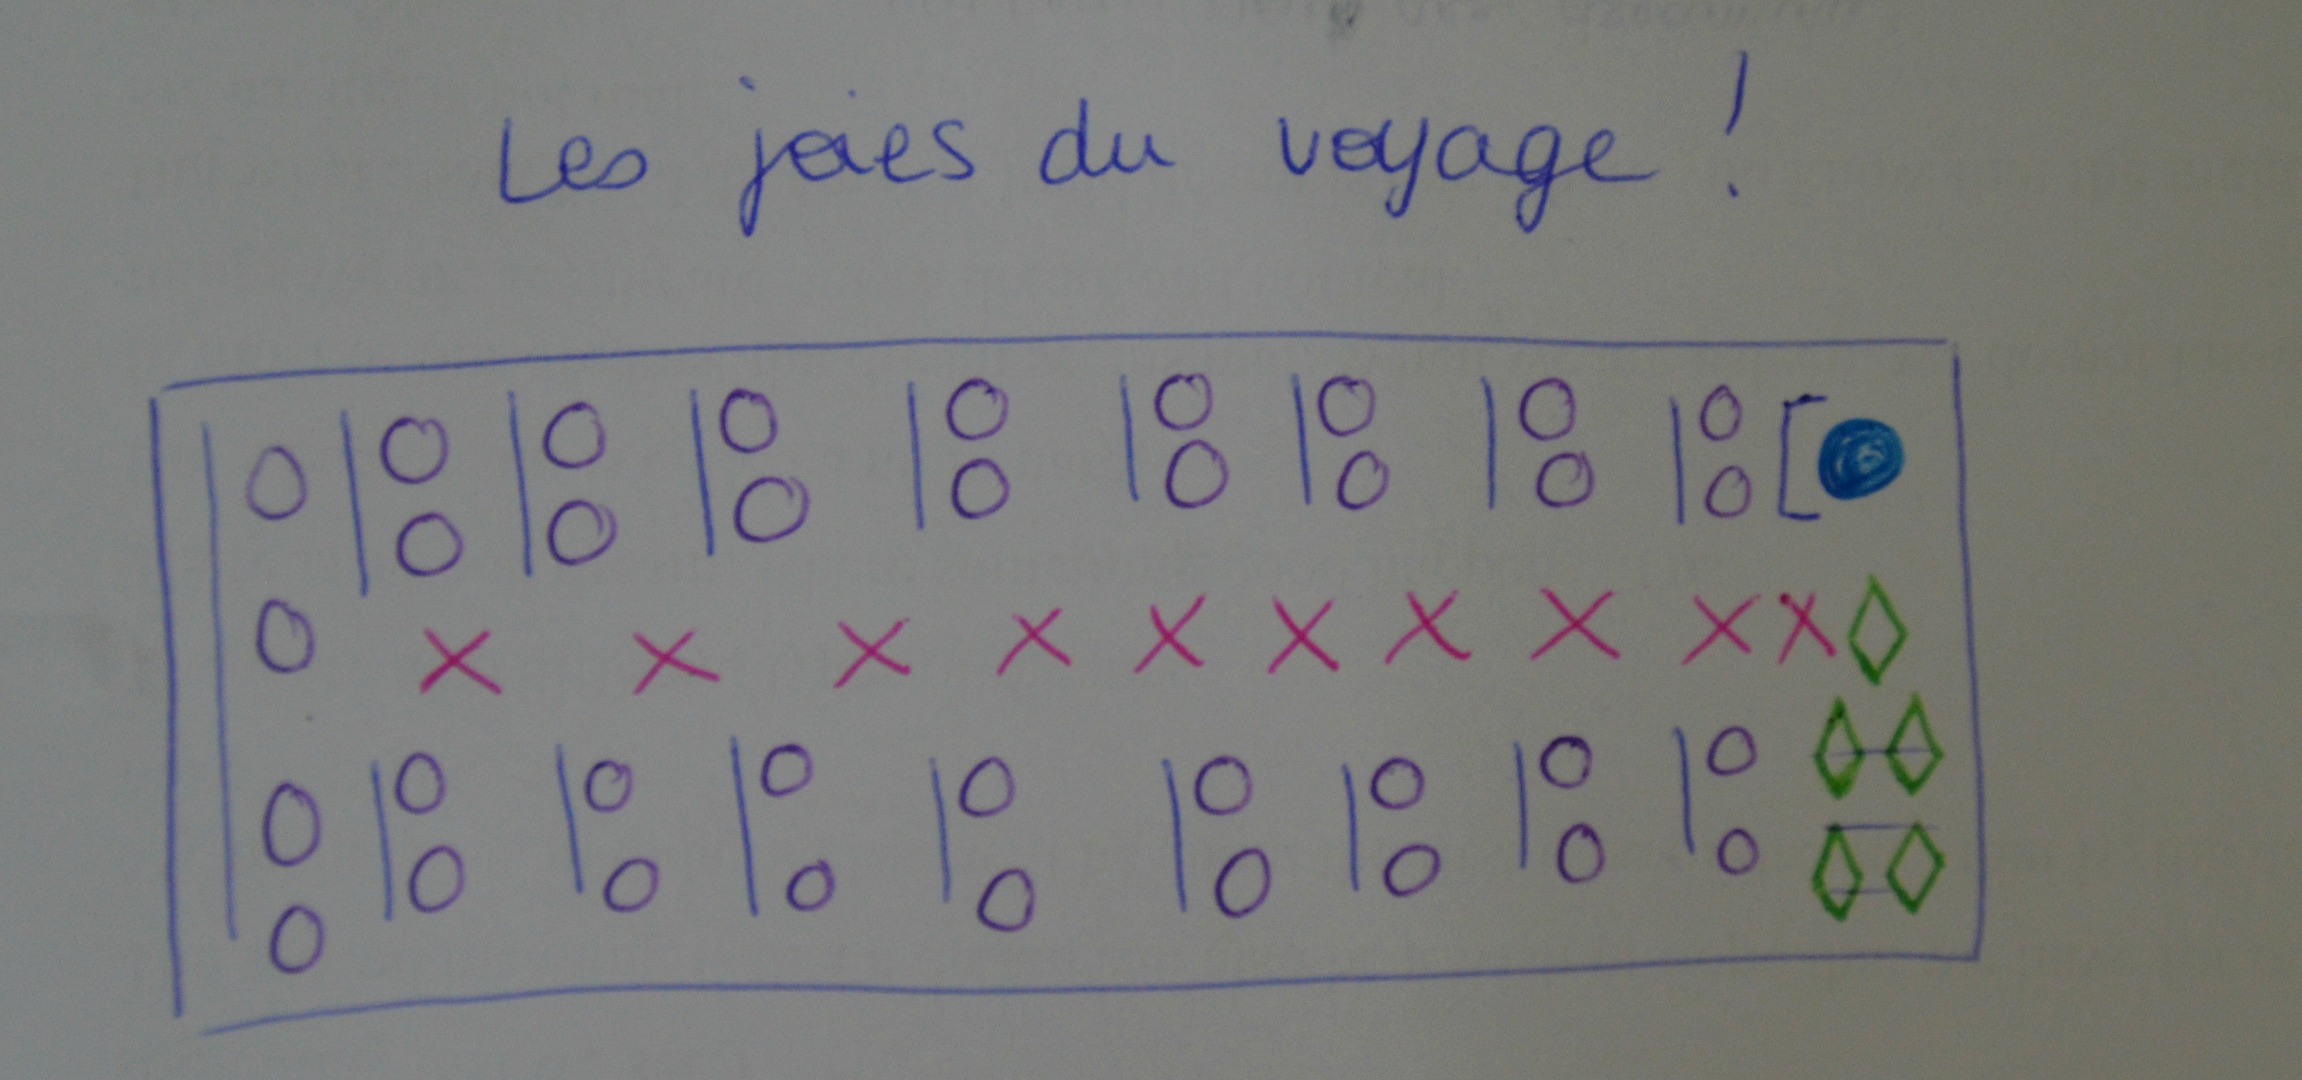 Les joies du voyage !